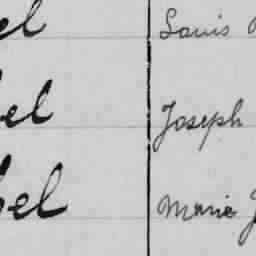 el Louis
el Joseph
el Marie J